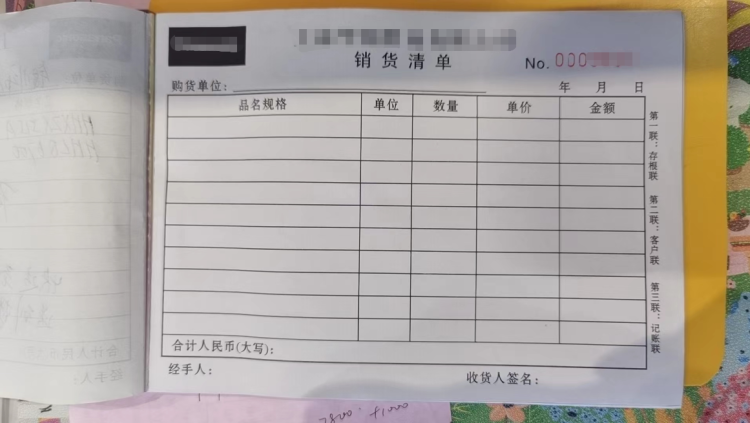 销货清单
No. 000
购货单位：
年 月 日
品名规格 单位 数量 单价 金额
合计人民币(大写)：
经手人： 收货人签名：
第一联：存根联
第二联：客户联
第三联：记账联
合计人民币
经手人：